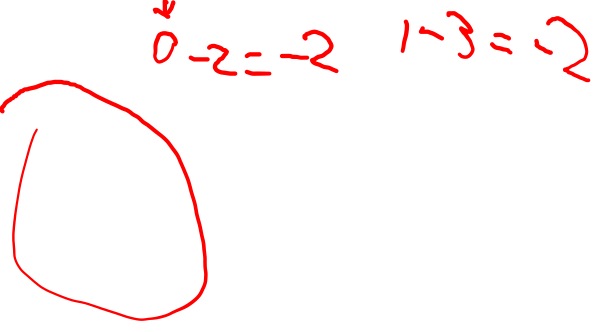 0-2=-2 1-3=-2